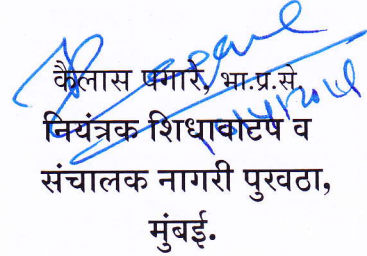 कैलास पगारे, भा.प्र.से,
नियंत्रक शिधावाटप व
संचालक नागरी पुरवठा,
मुंबई.